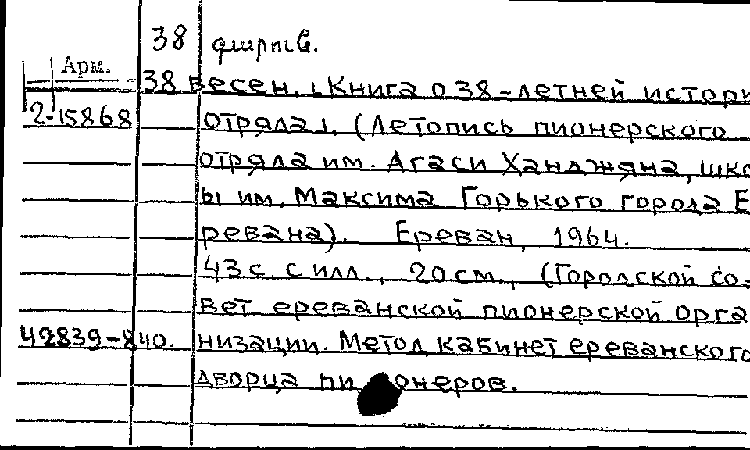 38 գարուն.
Арм.
38 весен. [Книга о 38-летней истори
2-15868 отряда]. (Летопись пионерского
отряда им. Агаси Ханджяна, шко
ы им. Максима Горького города Е
ревана). Ереван, 1964.
43 с. с илл., 20 см., (Городской со-
вет ереванской пионерской орга
42839-840. низации. Метод кабинет ереванского
дворца пионеров.